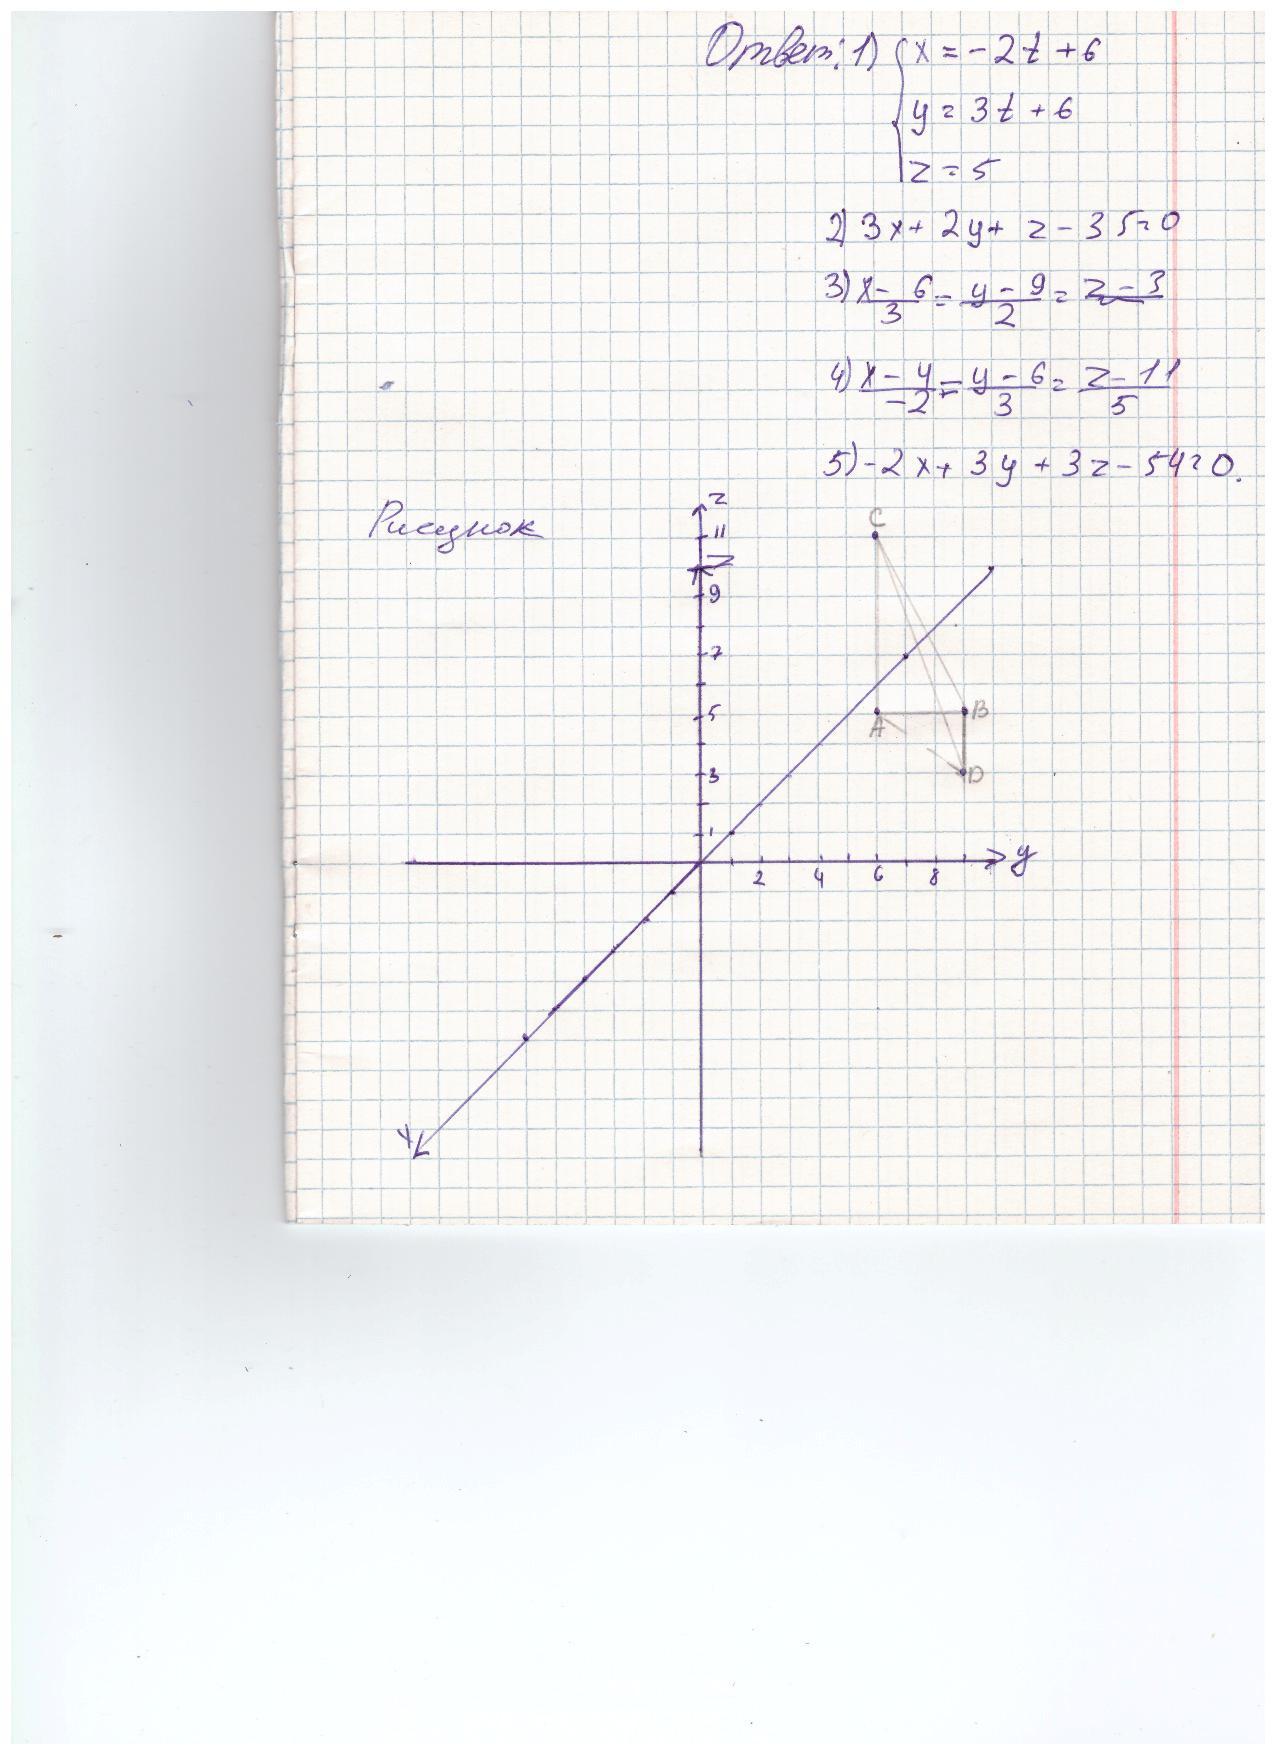 Ответ: 1) { x = -2t + 6
y = 3t + 6
z = 5
2) 3x + 2y + z - 35 = 0
3) x - 6 / 3 = y - 9 / 2 = z - 3
4) x - 4 / -2 = y - 6 / 3 = z - 11 / 5
5) -2x + 3y + 3z - 54 = 0.
Рисунок
z
C
11
9
7
5
A B
3
D
1
y
2 4 6 8
x